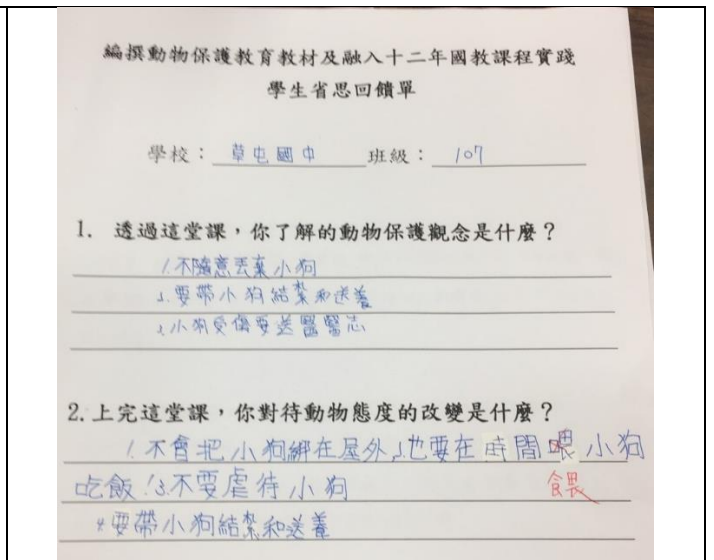 編撰動物保護教育教材及融入十二年國教課程實踐
學生省思回饋單
學校：草屯國中 班級：107
1. 透過這堂課，你了解的動物保護觀念是什麼？
1.不隨意丟棄小狗
2.要帶小狗結紮和送養
3.小狗受傷要送醫醫志
2.上完這堂課，你對待動物態度的改變是什麼？
1.不會把小狗綁在屋外,2.也要在時間喂小狗
餵
吃飯!3.不要虐待小狗
4.要帶小狗結紮和送養